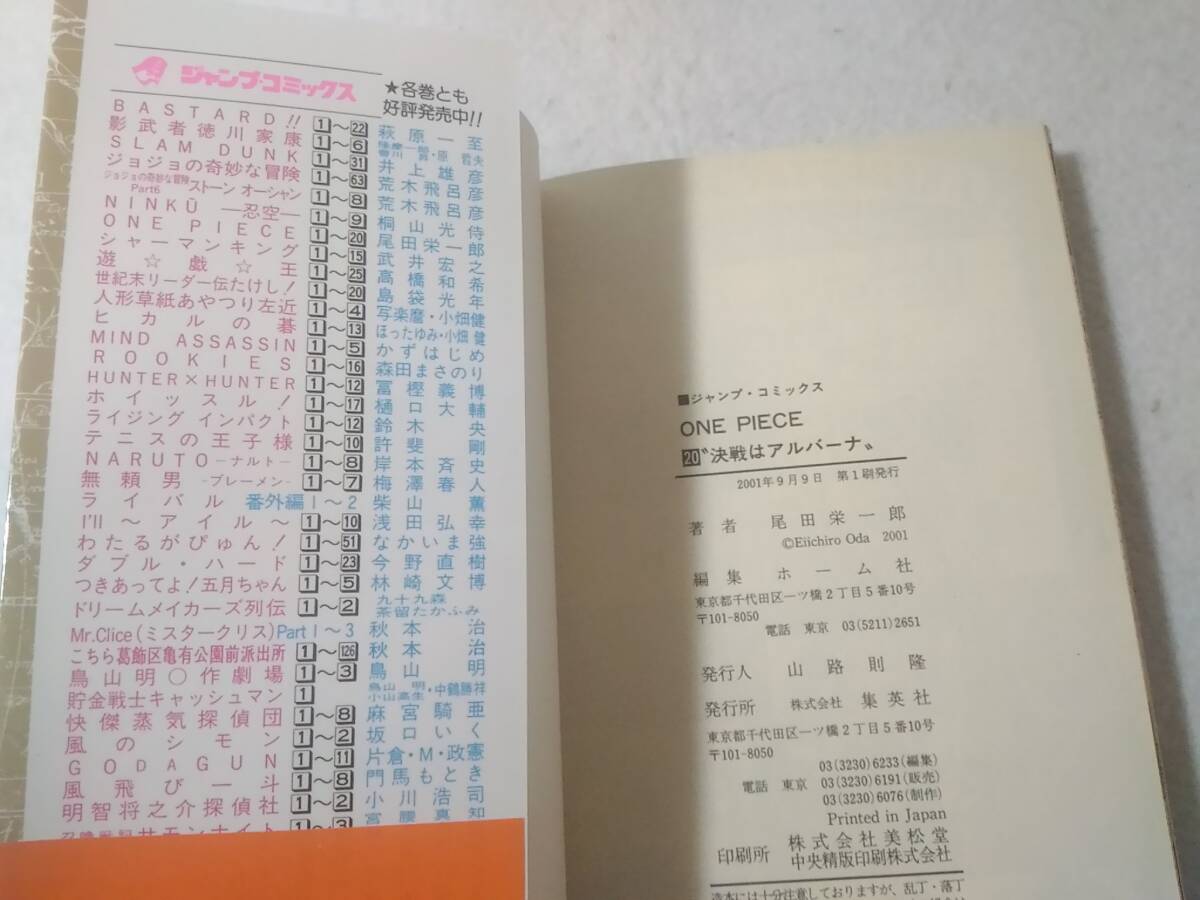 ジャンプ・コミックス
★各巻とも
好評発売中!!
BASTARD!! 1〜22 萩原一至
影武者徳川家康 1〜6 隆慶一郎・原哲夫
SLAM DUNK 1〜31 井上雄彦
ジョジョの奇妙な冒険 1〜63 荒木飛呂彦
ジョジョの奇妙な冒険Part6 ストーン オーシャン 1〜8 荒木飛呂彦
NINKŪ —忍空— 1〜9 桐山光侍
ONE PIECE 1〜20 尾田栄一郎
シャーマンキング 1〜15 武井宏之
遊☆戯☆王 1〜25 高橋和希
世紀末リーダー伝たけし! 1〜20 島袋光年
人形草紙あやつり左近 1〜4 写楽麿・小畑健
ヒカルの碁 1〜13 ほったゆみ・小畑健
MIND ASSASSIN 1〜5 かずはじめ
ROOKIES 1〜16 森田まさのり
HUNTER×HUNTER 1〜12 冨樫義博
ホイッスル! 1〜17 樋口大輔
ライジング インパクト 1〜12 鈴木央
テニスの王子様 1〜10 許斐剛
NARUTO—ナルト— 1〜8 岸本斉史
無頼男 -ブレーメン- 1〜7 梅澤春人
ライバル 番外編1〜2 柴山薫
I'll 〜アイル〜 1〜10 浅田弘幸
わたるがぴゅん! 1〜51 なかいま強
ダブル・ハード 1〜23 今野直樹
つきあってよ!五月ちゃん 1〜5 林崎文博
ドリームメイカーズ列伝 1〜2 九十九森 茶留たかふみ
Mr.Clice(ミスタークリス)Part 1〜3 秋本治
こちら葛飾区亀有公園前派出所 1〜126 秋本治
鳥山明〇作劇場 1〜3 鳥山明
貯金戦士キャッシュマン 1 鳥山明 小山高生・中鶴勝祥
快傑蒸気探偵団 1〜8 麻宮騎亜
風のシモン 1〜2 坂口いく
GODAGUN 1〜11 片倉・M・政憲
風飛び一斗 1〜8 門馬もとき
明智将之介探偵社 1〜2 小川浩司
サモンナイト 1〜3 宮腰真知
■ジャンプ・コミックス
ONE PIECE
20〝決戦はアルバーナ〟
2001年9月9日 第1刷発行
著者 尾田栄一郎
©Eiichiro Oda 2001
編集 ホーム社
東京都千代田区一ツ橋2丁目5番10号
〒101-8050
電話 東京 03(5211)2651
発行人 山路則隆
発行所 株式会社 集英社
東京都千代田区一ツ橋2丁目5番10号
〒101-8050
03(3230)6233(編集)
電話 東京 03(3230)6191(販売)
03(3230)6076(制作)
Printed in Japan
印刷所 株式会社美松堂
中央精版印刷株式会社
造本には十分注意しておりますが、乱丁・落丁